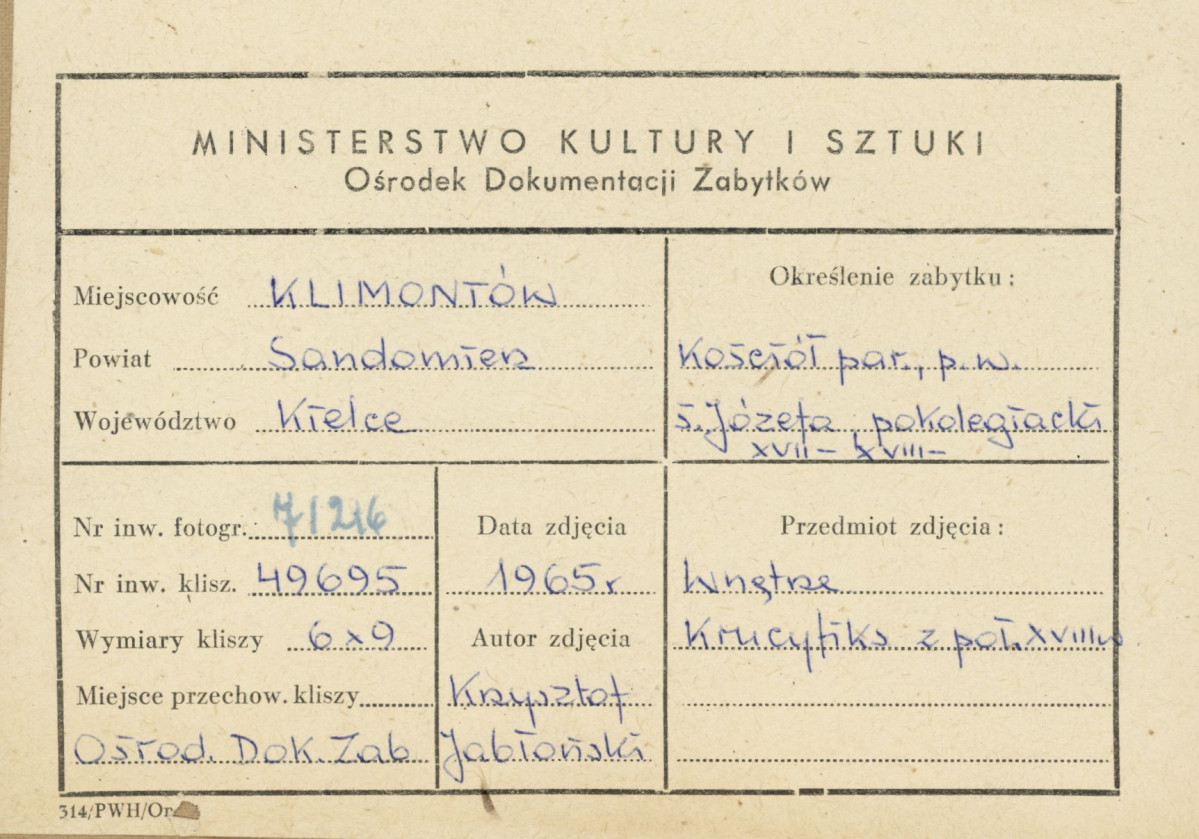 MINISTERSTWO KULTURY I SZTUKI
Ośrodek Dokumentacji Zabytków
Miejscowość KLIMONTÓW
Powiat Sandomierz
Województwo Kielce
Określenie zabytku:
Kościół par., p.w.
ś. Józefa, pokolegiacki
XVII – XVIII –
Nr inw. fotogr. 71216
Nr inw. klisz. 49695
Wymiary kliszy 6x9
Miejsce przechow. kliszy
Ośrod. Dok. Zab
Data zdjęcia
1965r
Autor zdjęcia
Krzysztof
Jabłoński
Przedmiot zdjęcia:
Wnętrze
Krucyfiks z poł. XVIII w
314/PWH/Or